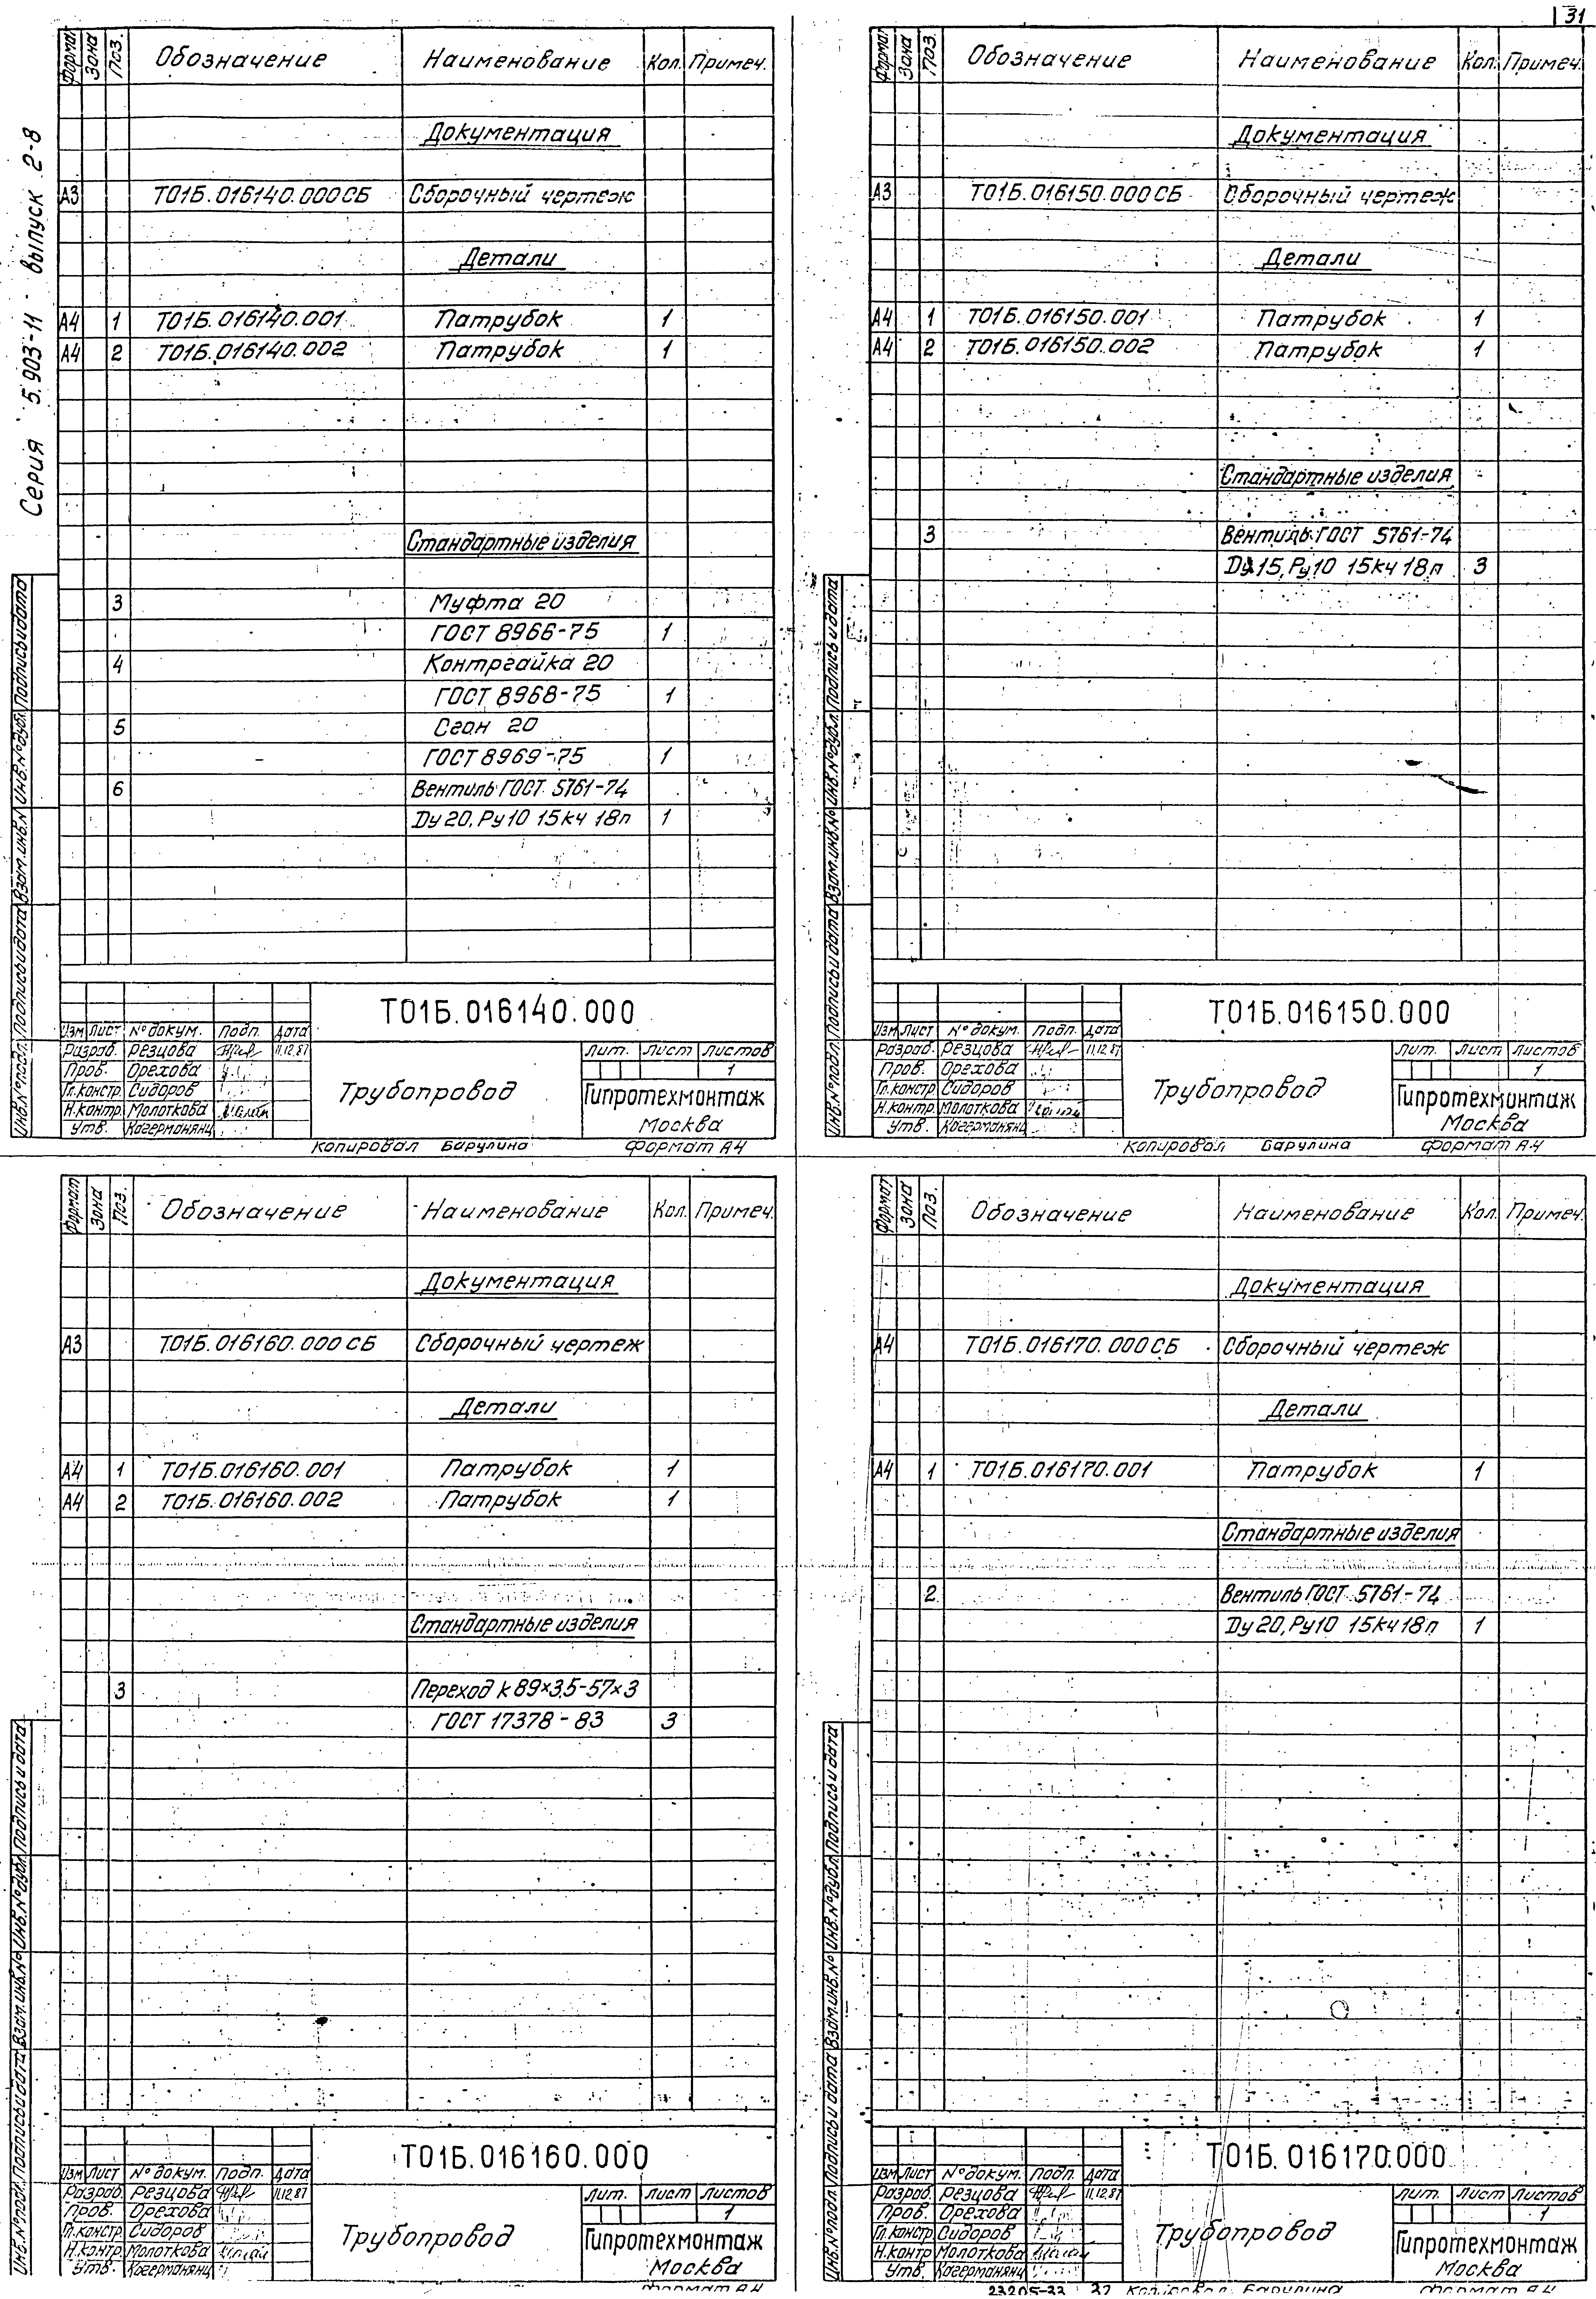 31
Серия 5.903-11 выпуск 2-8
Формат Зона Поз. Обозначение Наименование Кол. Примеч.
Документация
А3 Т01Б.016140.000СБ Сборочный чертеж
Детали
А4 1 Т01Б.016140.001 Патрубок 1
А4 2 Т01Б.016140.002 Патрубок 1
Стандартные изделия
3 Муфта 20
ГОСТ 8966-75 1
4 Контргайка 20
ГОСТ 8968-75 1
5 Сгон 20
ГОСТ 8969-75 1
6 Вентиль ГОСТ 5761-74
Ду 20, Ру10 15кч 18п 1
Инв.№подл. Подпись и дата Взам.инв.№ Инв.№дубл. Подпись и дата
Т01Б.016140.000
Изм Лист № докум. Подп. Дата
Разраб. Резцова 11.12.87
Пров. Орехова
Гл.констр. Сидоров
Н.контр. Молоткова
Утв. Кагерманянц
Трубопровод
Лит. Лист Листов
1
Гипротехмонтаж
Москва
Копировал Барулина Формат А4
Формат Зона Поз. Обозначение Наименование Кол. Примеч.
Документация
А3 Т01Б.016150.000СБ Сборочный чертеж
Детали
А4 1 Т01Б.016150.001 Патрубок 1
А4 2 Т01Б.016150.002 Патрубок 1
Стандартные изделия
3 Вентиль ГОСТ 5761-74
Ду 15, Ру10 15кч 18п 3
Инв.№подл. Подпись и дата Взам.инв.№ Инв.№дубл. Подпись и дата
Т01Б.016150.000
Изм Лист № докум. Подп. Дата
Разраб. Резцова 11.12.87
Пров. Орехова
Гл.констр. Сидоров
Н.контр. Молоткова
Утв. Кагерманянц
Трубопровод
Лит. Лист Листов
1
Гипротехмонтаж
Москва
Копировал Барулина Формат А4
Формат Зона Поз. Обозначение Наименование Кол. Примеч.
Документация
А3 Т01Б.016160.000СБ Сборочный чертеж
Детали
А4 1 Т01Б.016160.001 Патрубок 1
А4 2 Т01Б.016160.002 Патрубок 1
Стандартные изделия
3 Переход К 89×3,5-57×3
ГОСТ 17378-83 3
Инв.№подл. Подпись и дата Взам.инв.№ Инв.№дубл. Подпись и дата
Т01Б.016160.000
Изм Лист № докум. Подп. Дата
Разраб. Резцова 11.12.87
Пров. Орехова
Гл.констр. Сидоров
Н.контр. Молоткова
Утв. Кагерманянц
Трубопровод
Лит. Лист Листов
1
Гипротехмонтаж
Москва
Формат А4
Формат Зона Поз. Обозначение Наименование Кол. Примеч.
Документация
А4 Т01Б.016170.000СБ Сборочный чертеж
Детали
А4 1 Т01Б.016170.001 Патрубок 1
Стандартные изделия
2 Вентиль ГОСТ 5761-74
Ду 20, Ру10 15кч 18п 1
Инв.№подл. Подпись и дата Взам.инв.№ Инв.№дубл. Подпись и дата
Т01Б.016170.000
Изм Лист № докум. Подп. Дата
Разраб. Резцова 11.12.87
Пров. Орехова
Гл.констр. Сидоров
Н.контр. Молоткова
Утв. Кагерманянц
Трубопровод
Лит. Лист Листов
1
Гипротехмонтаж
Москва
23205-33 32 Копировал Барулина Формат А4